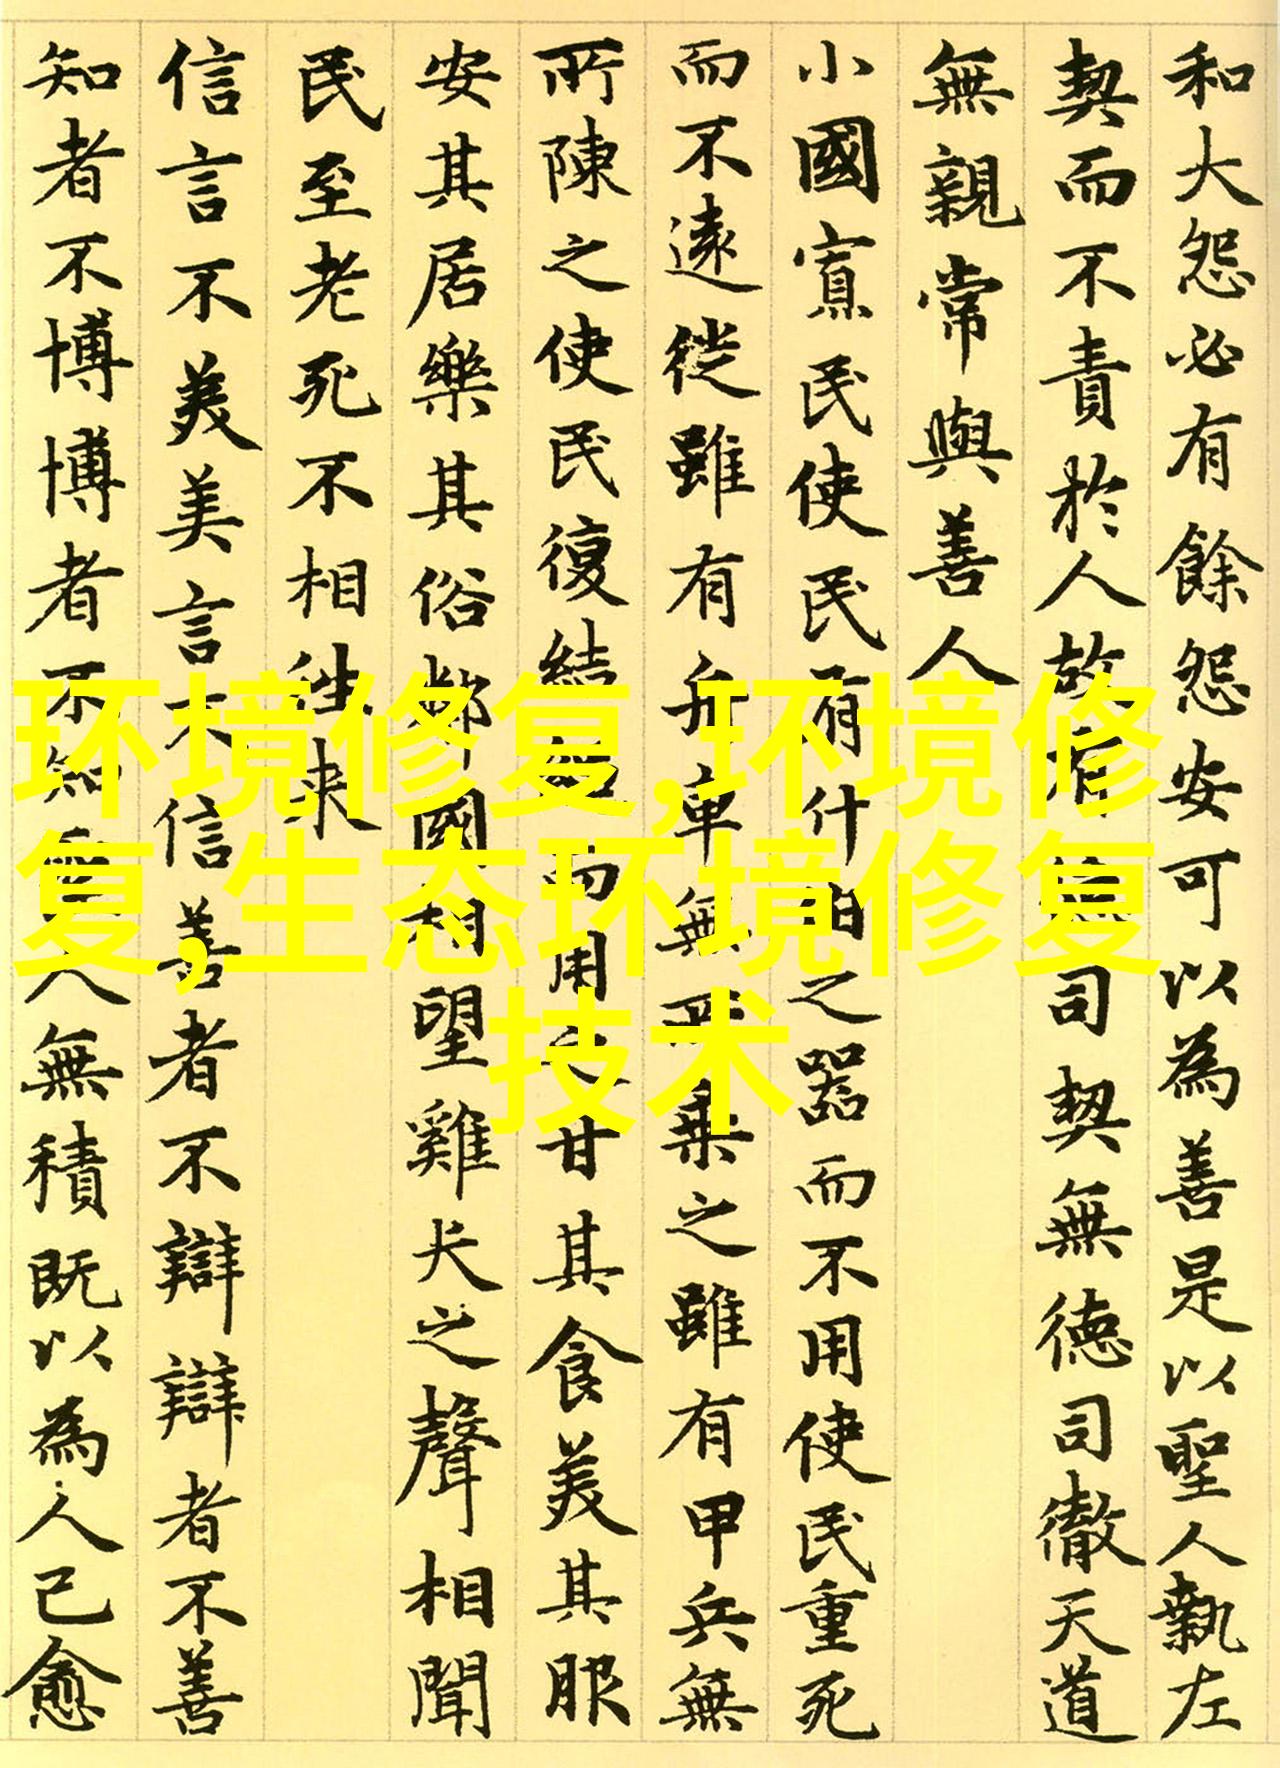 和大怨必有餘怨安可以為善是以聖人執左
契而不責於人故有德司契無德司徹天道
無親常與善人
小國寡民使民有什伯之器而不用使民重死
而不遠徙雖有舟車無所乘之雖有甲兵無
所陳之使民復結繩而用之甘其食美其服
安其居樂其俗鄰國相望雞犬之聲相聞
民至老死不相往来
信言不美美言不信善者不辯辯者不善
知者不博博者不知聖人無積既以為人己愈
环境修复,环境修
复,生态环境修复
技术